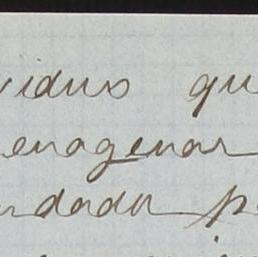 viduos qu
enagenar
ndada p